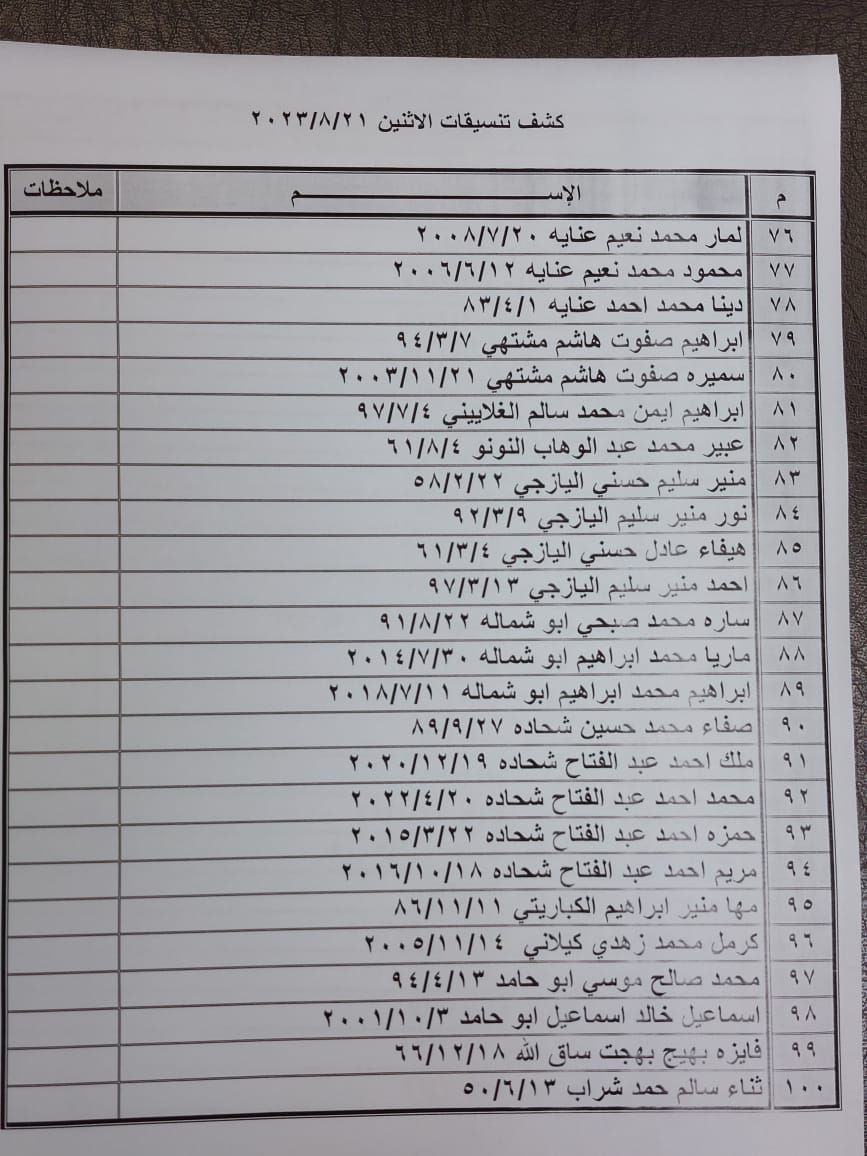 كشف تنسيقات الاثنين ٢٠٢٣/٨/٢١
م الإســـم ملاحظات
٧٦ لمار محمد نعيم عنايه ٢٠٠٨/٧/٢٠
٧٧ محمود محمد نعيم عنايه ٢٠٠٦/٦/١٢
٧٨ دينا محمد احمد عنايه ٨٣/٤/١
٧٩ ابراهيم صفوت هاشم مشتهي ٩٤/٣/٧
٨٠ سميره صفوت هاشم مشتهي ٢٠٠٣/١١/٢١
٨١ ابراهيم ايمن محمد سالم الغلاييني ٩٧/٧/٤
٨٢ عبير محمد عبد الوهاب النونو ٦١/٨/٤
٨٣ منير سليم حسني اليازجي ٥٨/٢/٢٢
٨٤ نور منير سليم اليازجي ٩٢/٣/٩
٨٥ هيفاء عادل حسني اليازجي ٦١/٣/٤
٨٦ احمد منير سليم اليازجي ٩٧/٣/١٣
٨٧ ساره محمد صبحي ابو شماله ٩١/٨/٢٢
٨٨ ماريا محمد ابراهيم ابو شماله ٢٠١٤/٧/٣٠
٨٩ ابراهيم محمد ابراهيم ابو شماله ٢٠١٨/٧/١١
٩٠ صفاء محمد حسين شحاده ٨٩/٩/٢٧
٩١ ملك احمد عبد الفتاح شحاده ٢٠٢٠/١٢/١٩
٩٢ محمد احمد عبد الفتاح شحاده ٢٠٢٢/٤/٢٠
٩٣ حمزه احمد عبد الفتاح شحاده ٢٠١٥/٣/٢٢
٩٤ مريم احمد عبد الفتاح شحاده ٢٠١٦/١٠/١٨
٩٥ مها منير ابراهيم الكباريتي ٨٦/١١/١١
٩٦ كرمل محمد زهدي كيلاني ٢٠٠٥/١١/١٤
٩٧ محمد صالح موسي ابو حامد ٩٤/٤/١٣
٩٨ اسماعيل خالد اسماعيل ابو حامد ٢٠٠١/١٠/٣
٩٩ فايزه بهيج بهجت ساق الله ٦٦/١٢/١٨
١٠٠ ثناء سالم حمد شراب ٥٠/٦/١٣